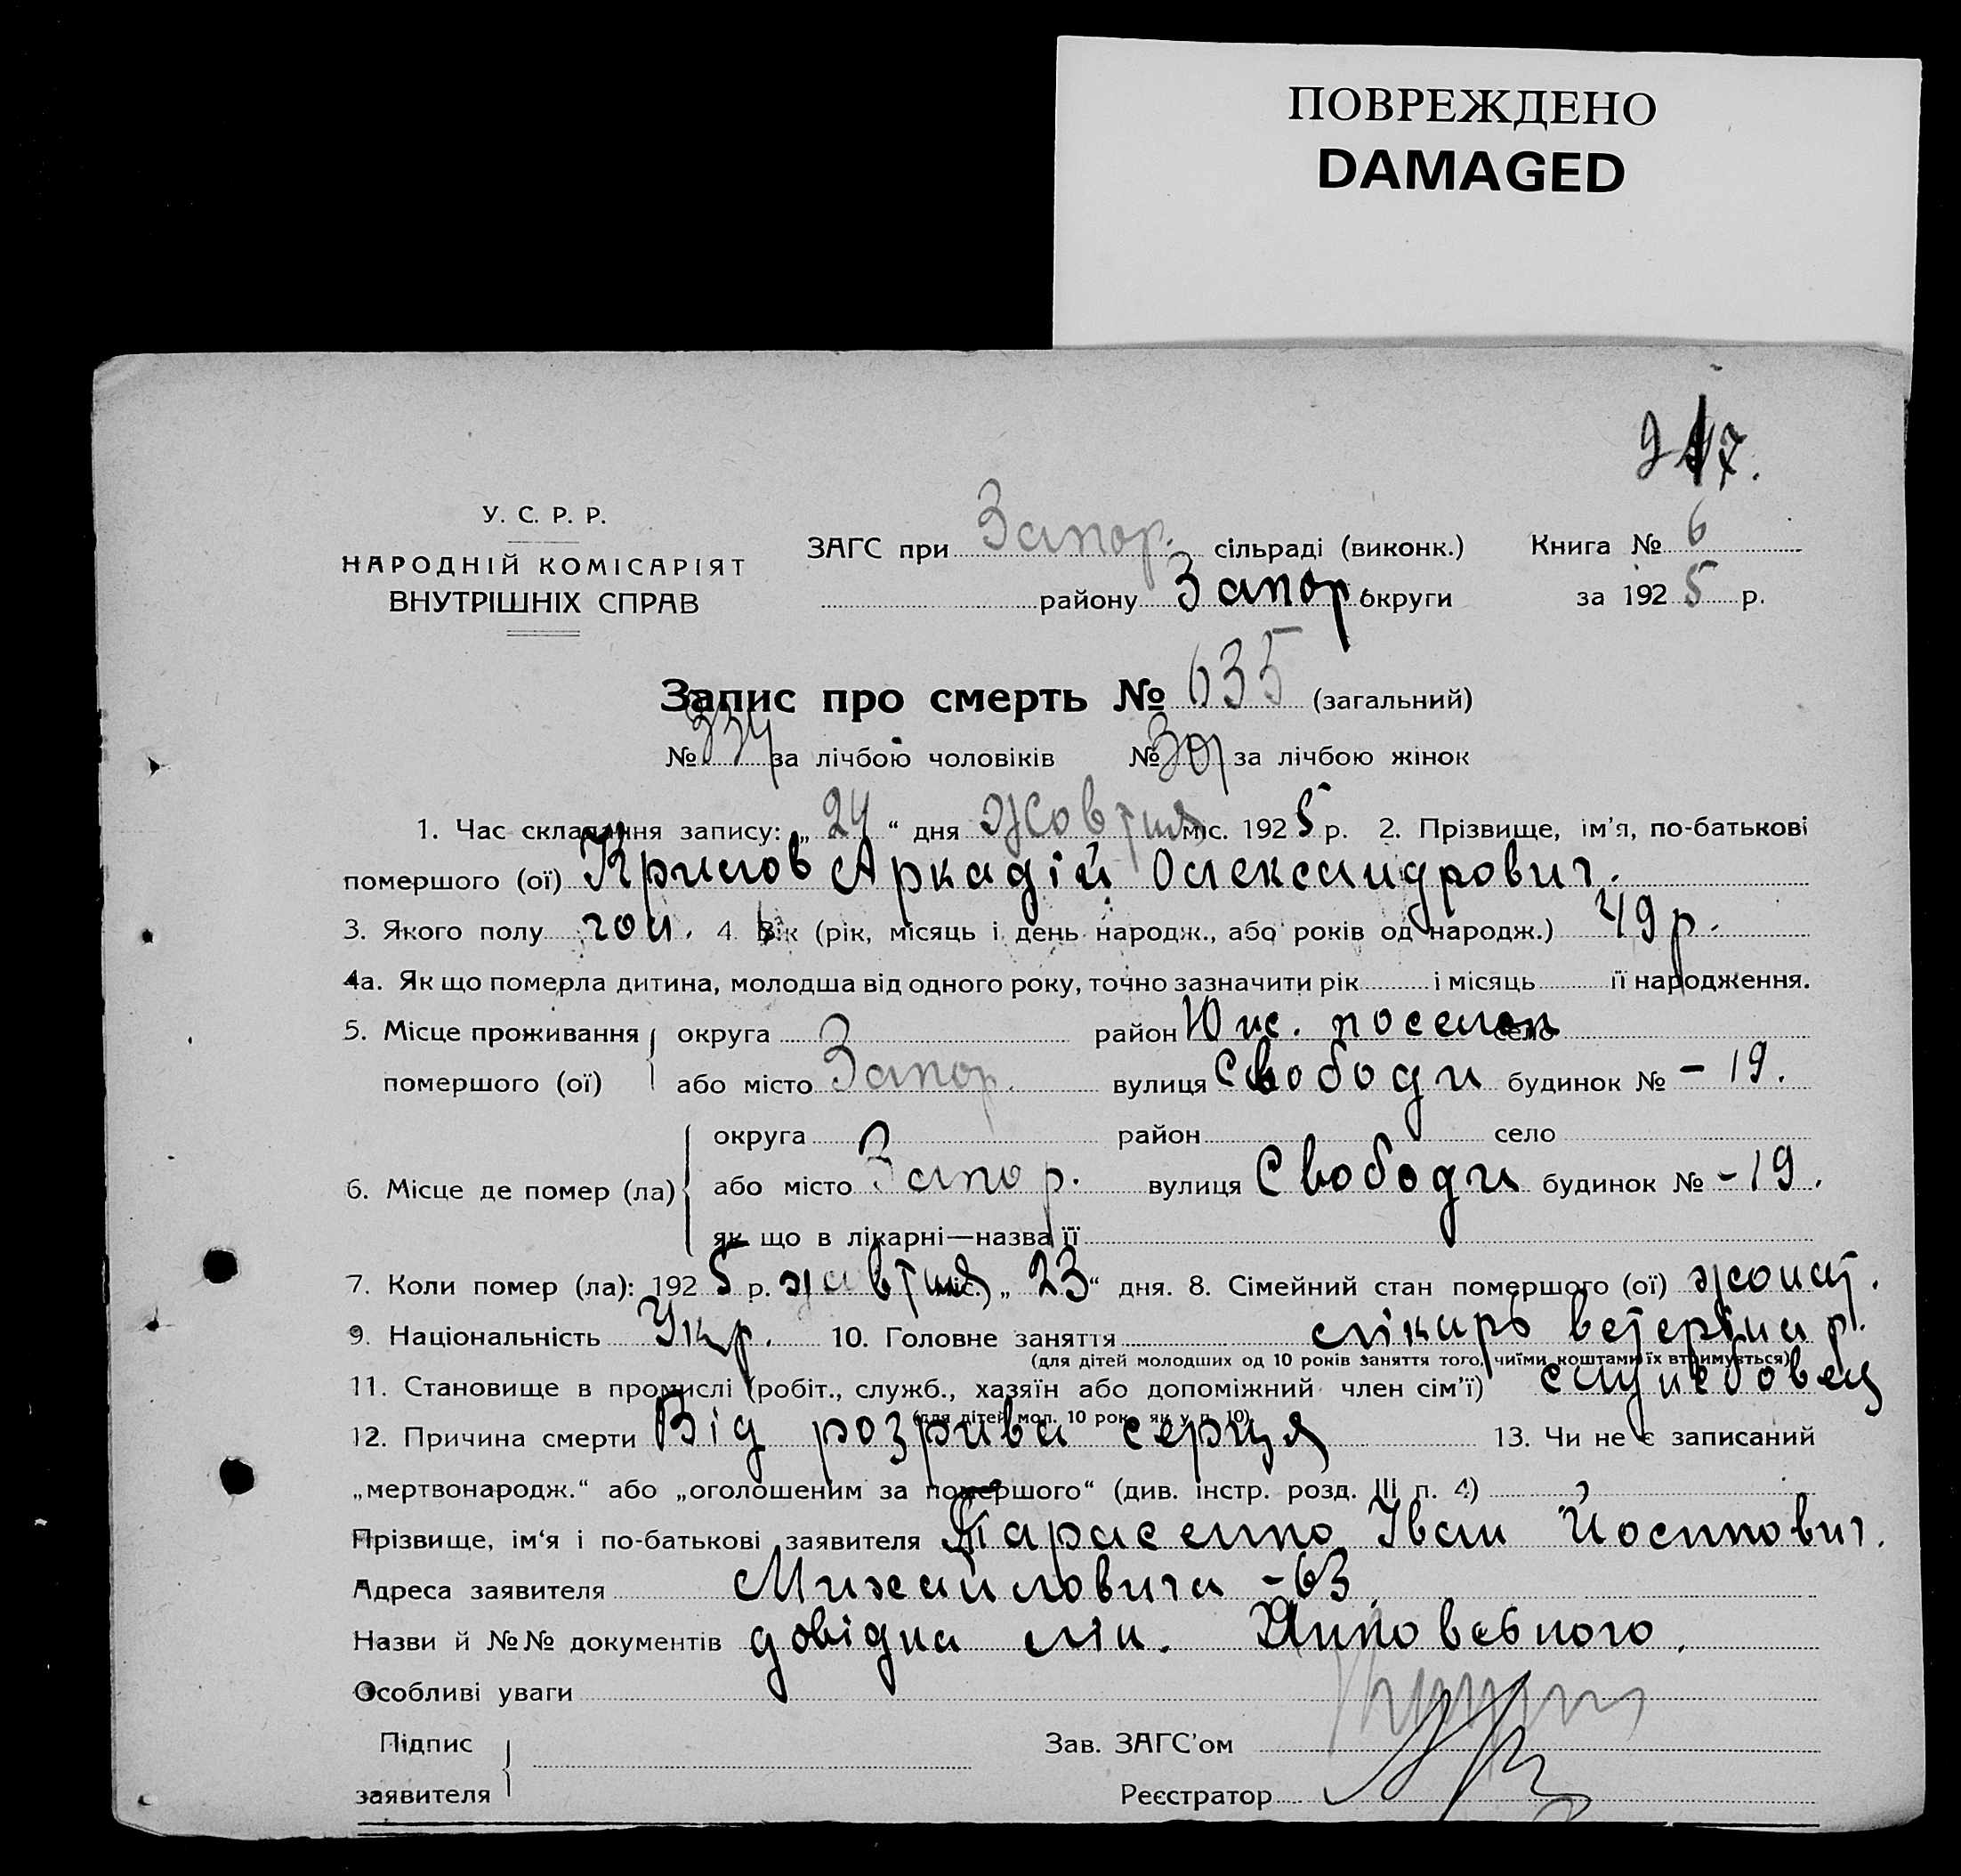 ПОВРЕЖДЕНО
DAMAGED
У. С. Р. Р.
НАРОДНІЙ КОМІСАРІЯТ
ВНУТРІШНІХ СПРАВ
ЗАГС при Запор. сільраді (виконк.) Книга № 6
району Запор округи за 1925 р.
Запис про смерть № 635 (загальний)
№ 334 за лічбою чоловіків № 301 за лічбою жінок
1. Час складання запису: „24“ дня Жовтня міс. 1925 р. 2. Прізвище, ім'я, по-батькові
помершого (ої) Крилов Аркадій Олександрович.
3. Якого полу чол. 4. Вік (рік, місяць і день народж., або років од народж.) 49 р.
4а. Як що померла дитина, молодша від одного року, точно зазначити рік і місяць її народження.
5. Місце проживання округа район Юж. поселоп село
помершого (ої) або місто Запор. вулиця Свободи будинок № – 19.
округа район село
6. Місце де помер (ла) або місто Запор. вулиця Свободи будинок № – 19.
як що в лікарні—назва її
7. Коли помер (ла): 1925 р. жовтня міс. „23“ дня. 8. Сімейний стан помершого (ої) жонат.
9. Національність Укр. 10. Головне заняття лікарь ветерінар.
(для дітей молодших од 10 років заняття того, чиїми коштами їх втримується)
11. Становище в промислі (робіт., служб., хазяїн або допоміжний член сім'ї) службовець
(для дітей мол. 10 рок. як у п. 10)
12. Причина смерти Від розрива серця 13. Чи не є записаний
„мертвонародж.“ або „оголошеним за помершого“ (див. інстр. розд. III п. 4)
Прізвище, ім'я і по-батькові заявителя Тарасенко Іван Йосипович.
Адреса заявителя Михайловича – 63
Назви й №№ документів довідка лік.
Особливі уваги
Підпис Зав. ЗАГС'ом
заявителя Реєстратор